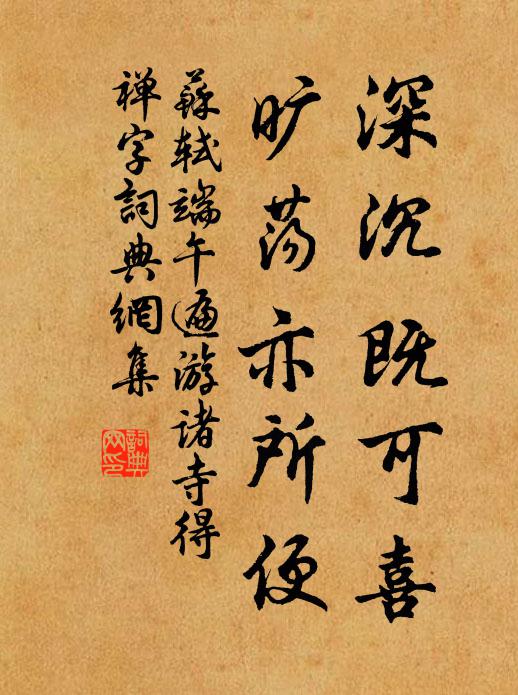 深沉既可喜
旷荡亦所便
蘇軾端午遍游诸寺得
禅字詞典網集
詞典网印